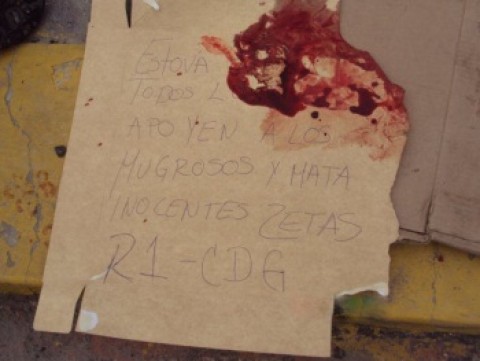 ESTO VA
TODOS L
APOYEN A LOS
MUGROSOS Y MATA
INOCENTES ZETAS
R1-CDG